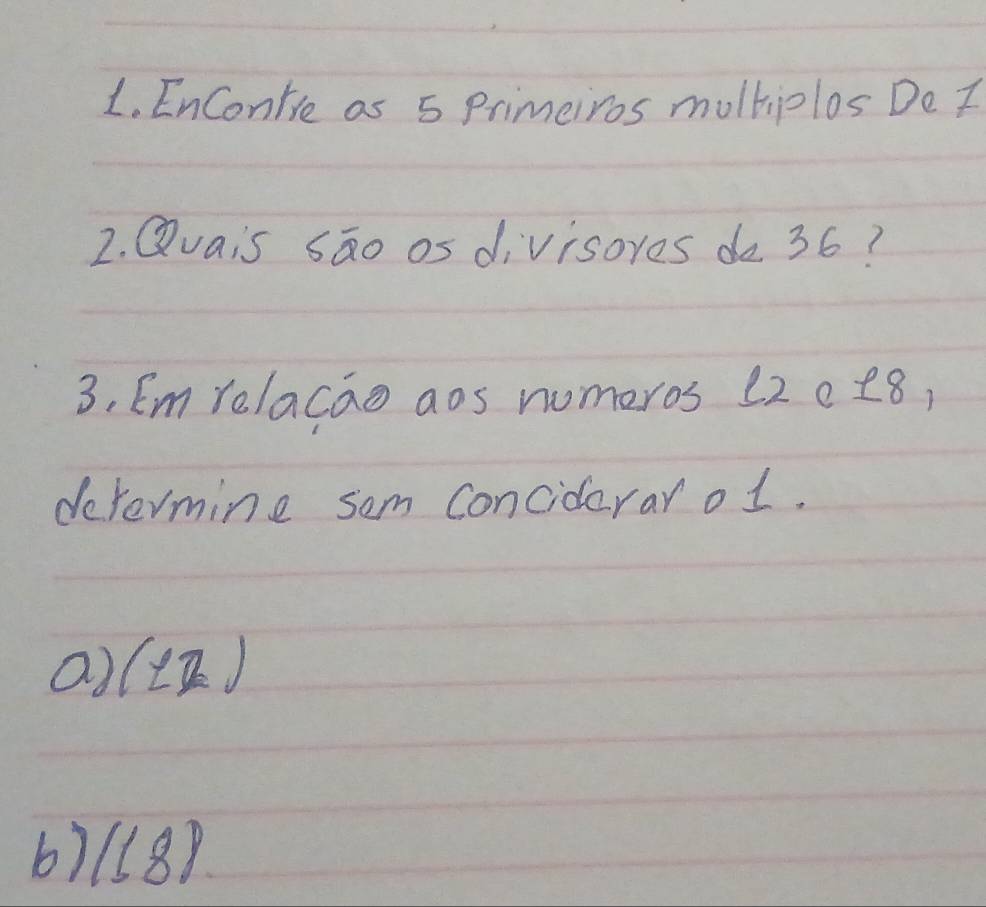 1. Encontre os 5 Primeiros multiplos De 1
2. Quais são os divisores de 36?
3. Em relação aos numeros 12 e 18,
determine sem conciderar o 1.
a) (12)
b) (18)